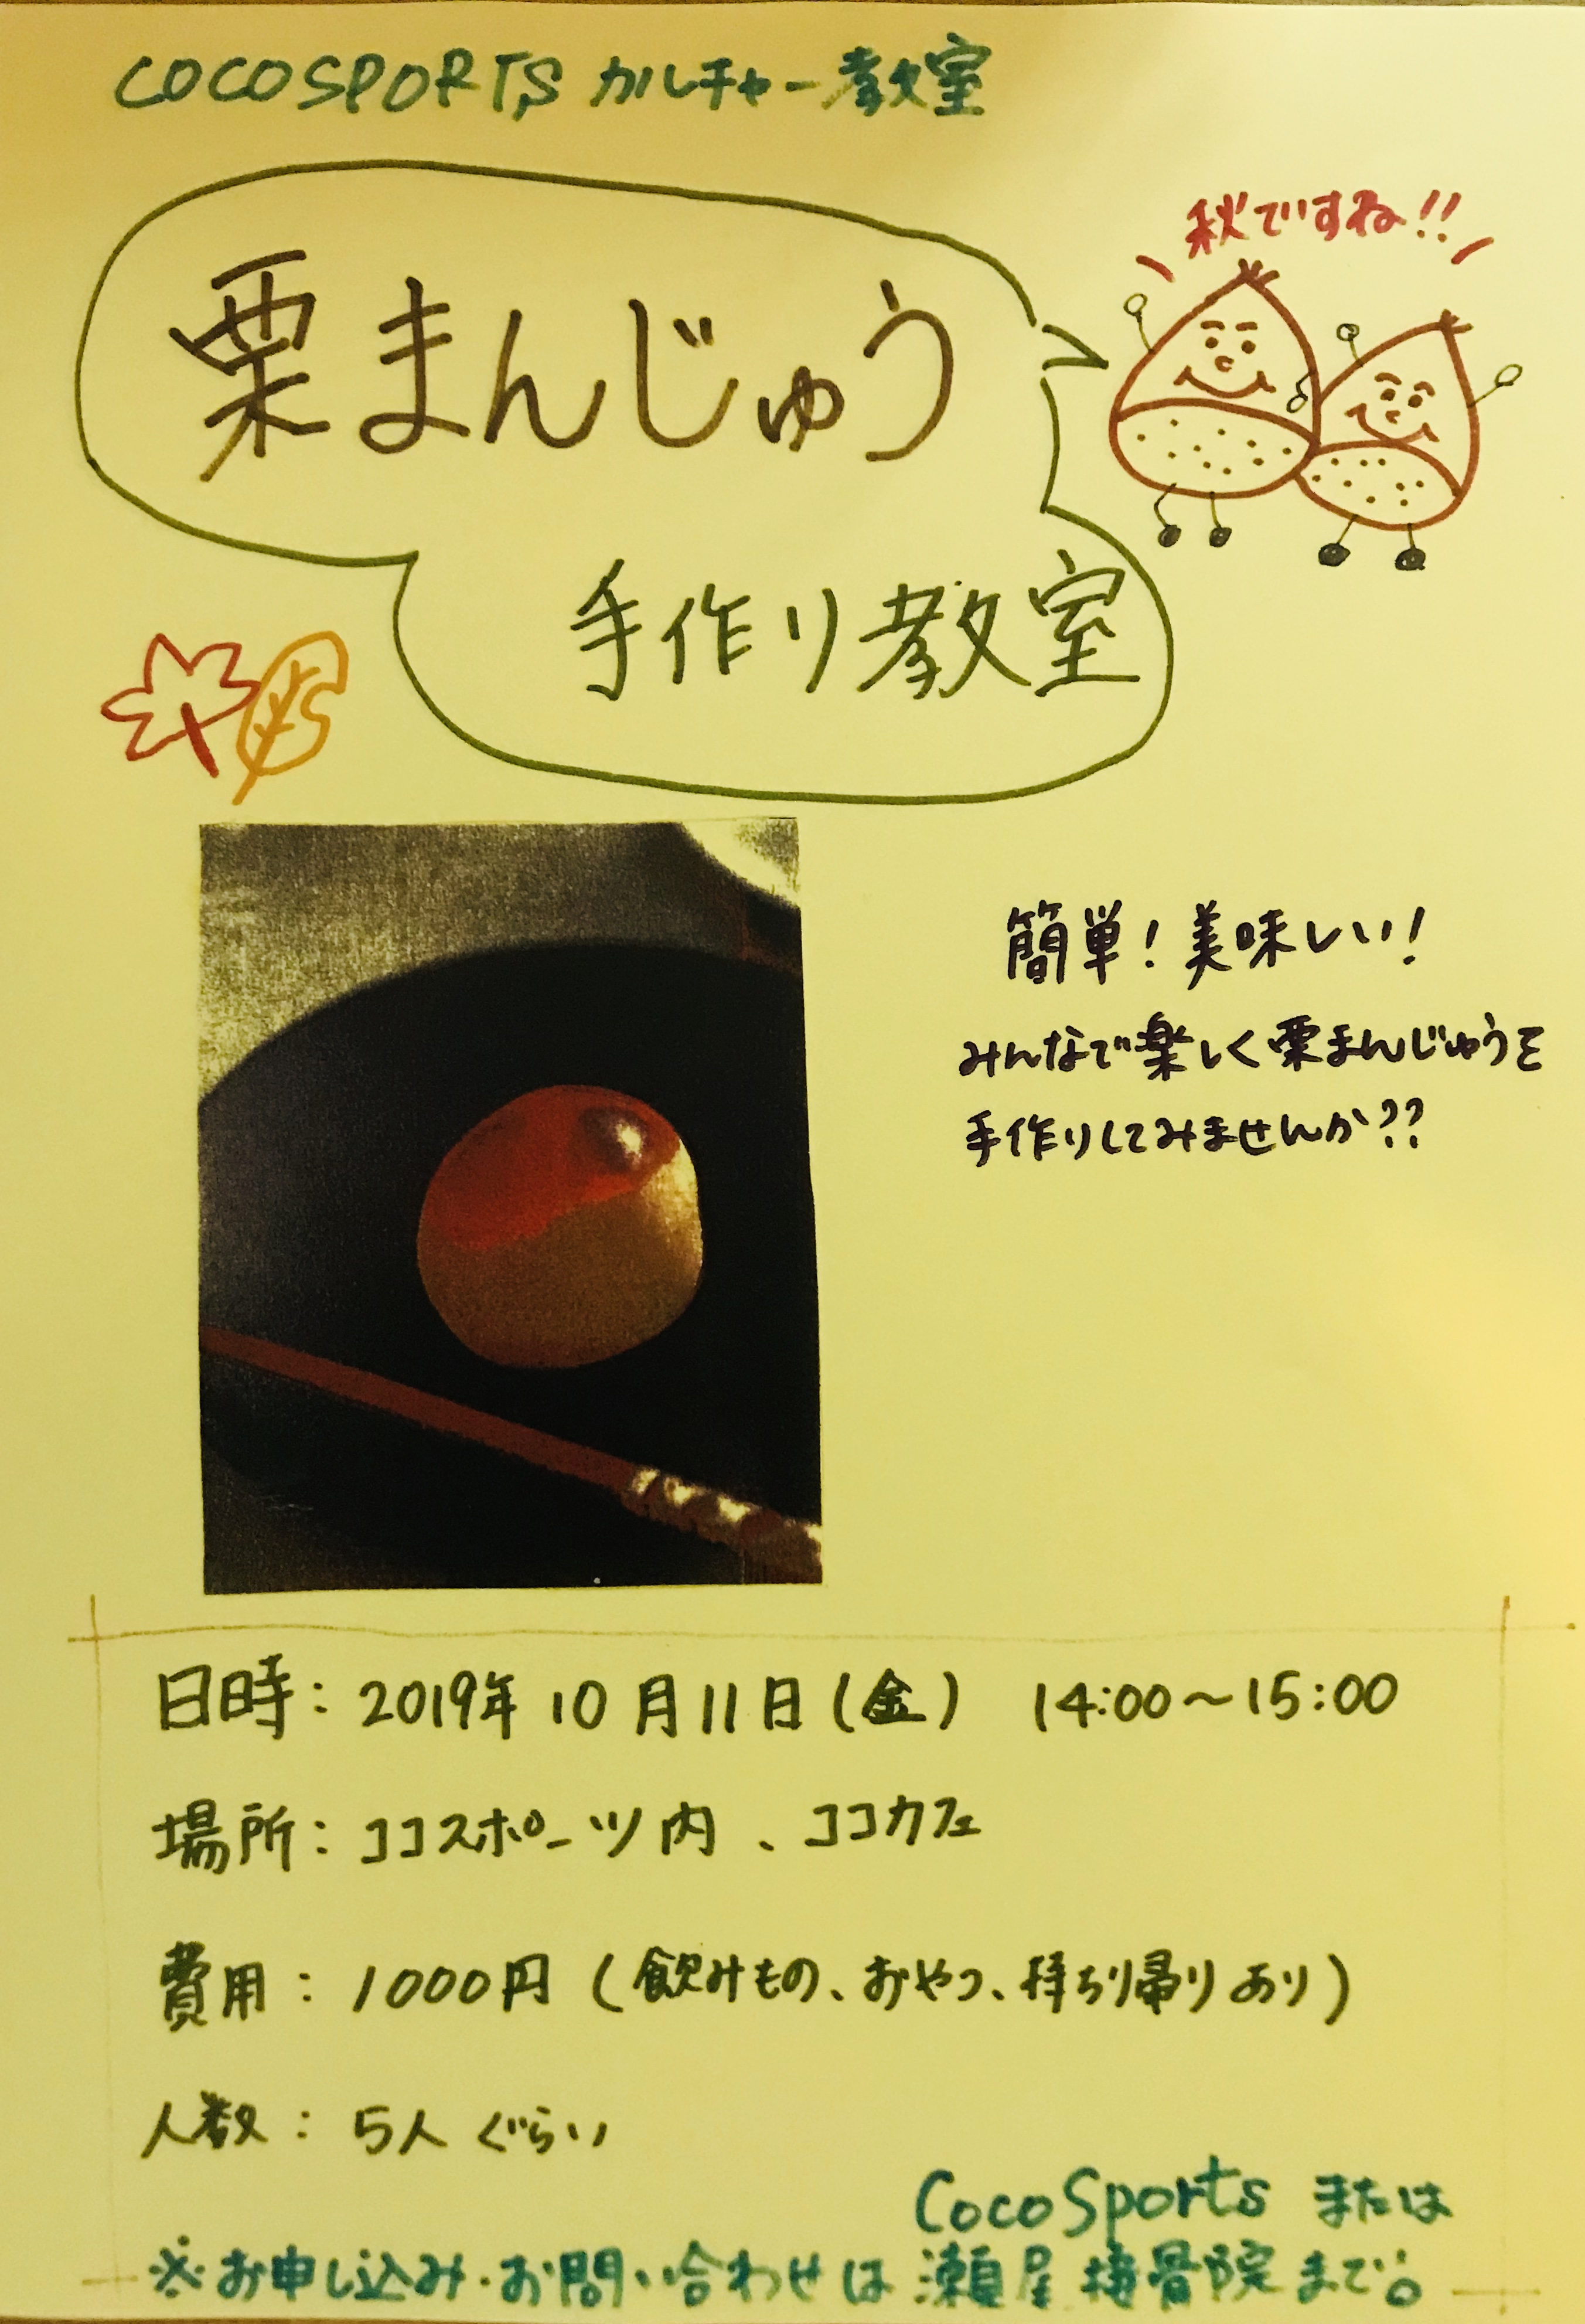 COCOSPORTS カルチャー教室
秋ですね!!
栗まんじゅう
手作り教室
簡単!美味しい!
みんなで楽しく栗まんじゅうを
手作りしてみませんか??
日時:2019年10月11日(金) 14:00~15:00
場所:ココスポーツ内、ココカフェ
費用:1000円(飲みもの、おやつ、持ち帰りあり)
人数:5人ぐらい
CocoSports または
※お申し込み・お問い合わせは瀬屋接骨院まで。